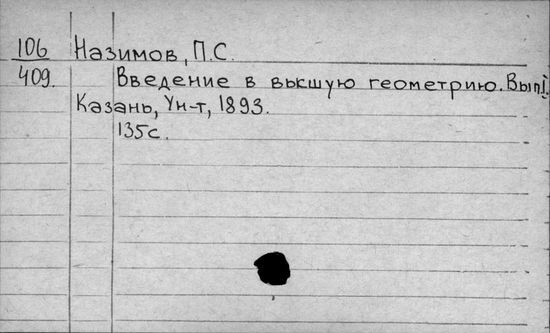 106 Назимов, П.С.
409. Введение в высшую геометрию. Вып I.
Казань, Ун-т, 1893.
135с.